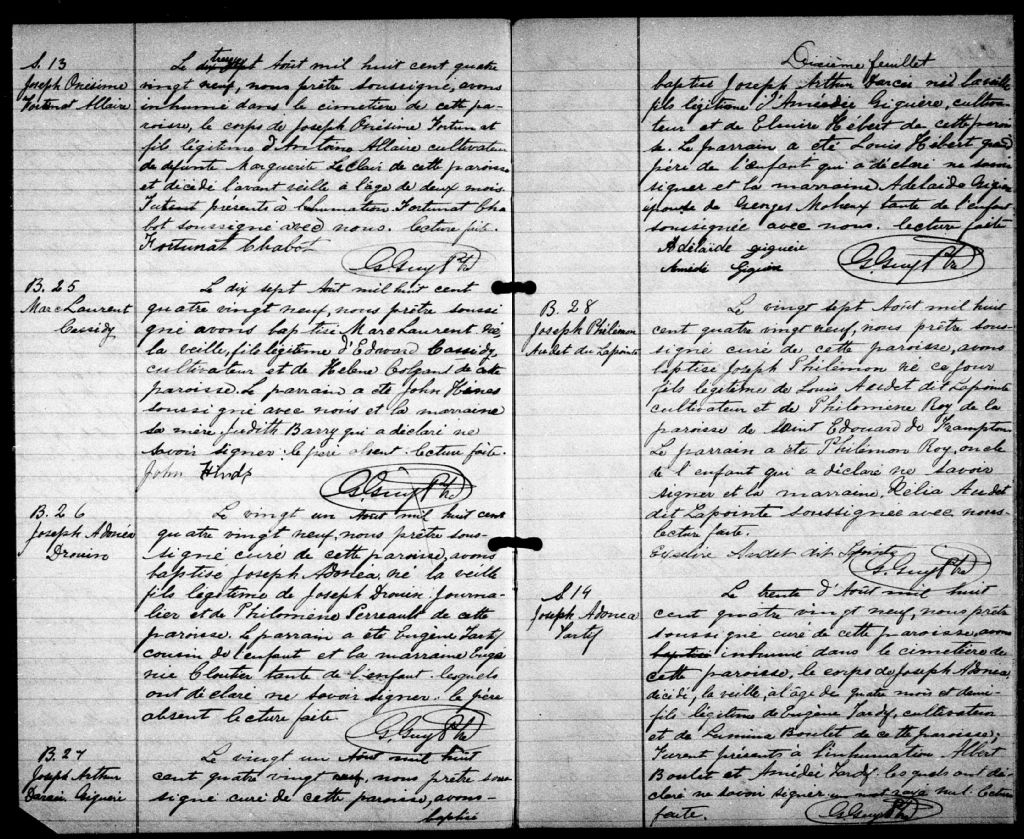 S. 13
Joseph Onésime
Fortunat Allaire
Le treize Août mil huit cent quatre
vingt neuf, nous prêtre soussigné, avons
inhumé dans le cimetère de cette pa-
roisse, le corps de Joseph Onésime Fortunat
fils légitime d'Antoine Allaire cultivateur
de defunte Marguerite Leclair de cette paroisse
et décédé l'avant veille à l'age de deux mois
Furent présents à l'inhumation Fortunat Cha-
bot soussigné avec nous. lecture faite.
Fortunat Chabot
G. Guy Ptre
B. 25
Marc Laurent
Cassidy
Le dix sept Août mil huit cent
quatre vingt neuf, nous prêtre soussi-
gné avons baptisé Marc Laurent né
la veille, fils légitime d'Edward Cassidy
cultivateur et de Helene Colgan de cette
paroisse. Le parrain a été John
soussigné avec nous et la marraine
sa mère Judith Barry qui a déclaré ne
savoir signer. le père absent. lecture faite.
John
G. Guy Ptre
B. 26
Joseph Adonéa
Drouin
Le vingt un Août mil huit cent
quatre vingt neuf, nous prêtre sous-
signé curé de cette paroisse, avons
baptisé Joseph Adonéa, né la veille
fils légitime de Joseph Drouin journa-
lier et de Philomène Perreault de cette
paroisse. Le parrain a été Eugène Tardif
cousin de l'enfant et la marraine Eugé
nie Cloutier tante de l'enfant lesquels
ont déclaré ne savoir signer. le père
absent lecture faite.
G. Guy Ptre
B. 27
Joseph Arthur
Giguère
Le vingt un Août mil huit
cent quatre vingt neuf, nous prêtre sous
signé curé de cette paroisse, avons
baptisé
Dixième feuillet
baptisé Joseph Arthur né la veille
fils légitime d'Amédée Giguère, cultiva-
teur et de Elmire Hébert de cette parois
se. Le parrain a été Louis Hébert grand
père de l'enfant qui a déclaré ne savoir
signer et la marraine Adelaide Giguère
épouse de Georges Maheux tante de l'enfant
soussignée avec nous. lecture faite
Adélaïde giguère
Amédé Giguère
G. Guy Ptre
B. 28
Joseph Philémon
Audet dit Lapointe
Le vingt sept Août mil huit
cent quatre vingt neuf, nous prêtre sous-
signé curé de cette paroisse, avons
baptisé Joseph Philémon né ce jour
fils légitime de Louis Audet dit Lapointe
cultivateur et de Philomène Roy de la
paroisse de Saint Edouard de Frampton
Le parrain a été Philémon Roy, oncle
de l'enfant qui a déclaré ne savoir
signer et la marraine, Audet
dit Lapointe soussignée avec nous
lecture faite.
Audet dit Lapointe
G. Guy Ptre
S. 14
Joseph Adonéa
Tardif
Le trente d'Août mil huit
cent quatre vingt neuf, nous prêtre
soussigné curé de cette paroisse, avons
baptisé inhumé dans le cimetière de
cette paroisse, le corps de Joseph Adonéa
décédé, la veille, à l'age de quatre mois et demi
fils légitime de Eugène Tardif, cultivateur
et de Boulet de cette paroisse;
Furent présents à l'inhumation Albert
Boulet et Amédée Tardif lesquels ont dé-
claré ne savoir signer un mot rayé nul. lecture
faite.
G. Guy Ptre